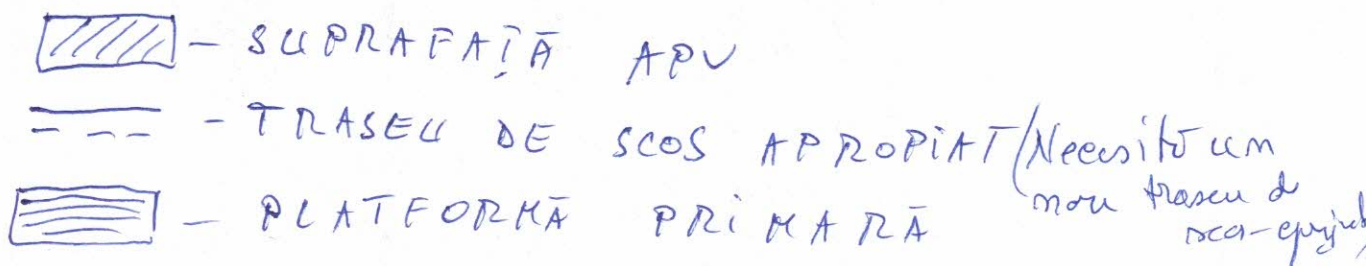 - SUPRAFAȚĂ APV
- TRASEU DE SCOS APROPIAT (Necesită un
nou traseu d
- PLATFORMĂ PRIMARĂ